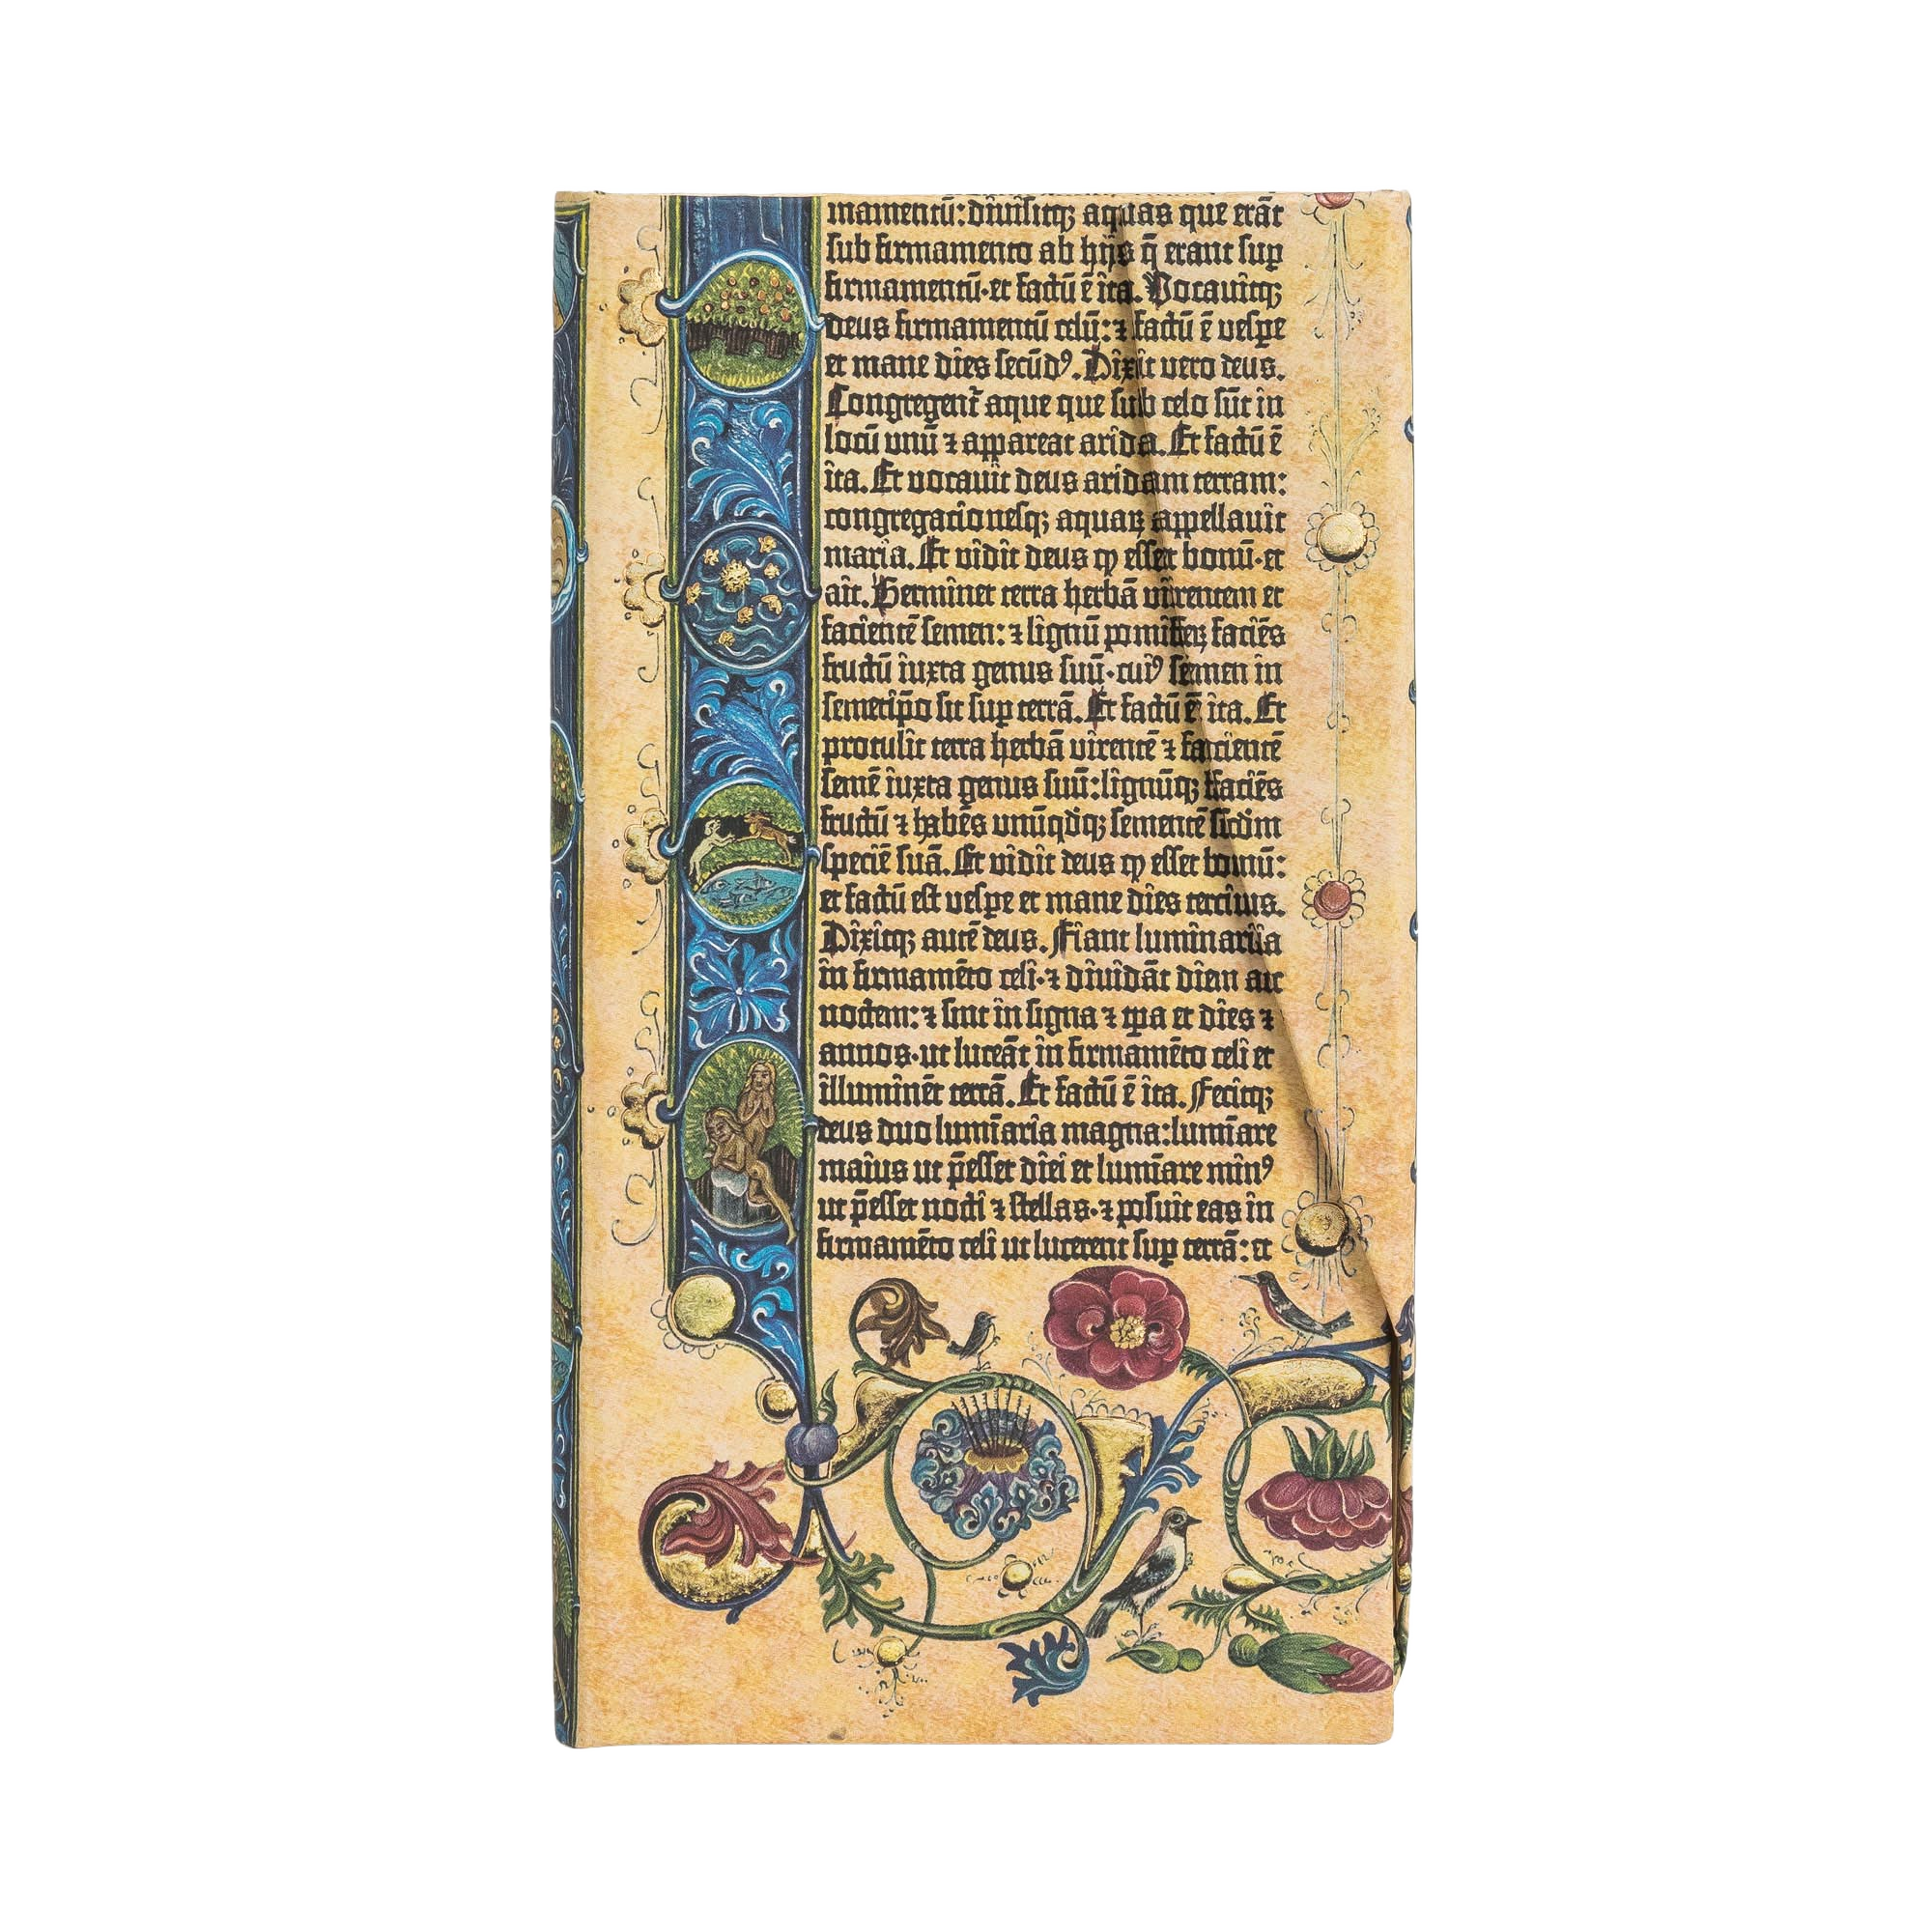 mamentū: divisitqꝫ aquas que erāt
sub firmamento ab hijs q̄ erant sup
firmamentū· et factū ē ita. Vocavitqꝫ
deus firmamentū celū: ⁊ factū ē vespe
et mane dies secūdꝰ. Dixit vero deus.
Congregent᷑ aque que sub celo sūt in
locū unū ⁊ appareat arida. Et factū ē
ita. Et vocavit deus aridam terram:
congregacionesqꝫ aquaꝝ appellavit
maria. Et vidit deus ꝙ esset bonū· et
ait. Germinet terra herbā virentem et
facientē semen: ⁊ lignū pomifeꝝ faciēs
fructū iuxta genus suū· cuiꝰ semen in
semetip̄o sit sup terrā. Et factū ē ita. Et
protulit terra herbā virentē ⁊ facientē
semē iuxta genus suū: lignūqꝫ faciēs
fructū ⁊ habēs unūqdqꝫ sementē scdm
speciē suā. Et vidit deus ꝙ esset bonū:
et factū est vespe et mane dies tercius.
Dixitqꝫ autē deus. Fiant luminaria
in firmamēto celi· ⁊ dividāt diem ac
noctem: ⁊ sint in signa ⁊ tpa et dies ⁊
annos· ut luceāt in firmamēto celi et
illuminēt terrā. Et factū ē ita. Fecitqꝫ
deus duo lumīaria magna: lumīare
maius ut p̄esset diei et lumīare minꝰ
ut p̄esset nocti ⁊ stellas· ⁊ posuit eas in
firmamēto celi ut lucerent sup terrā: et